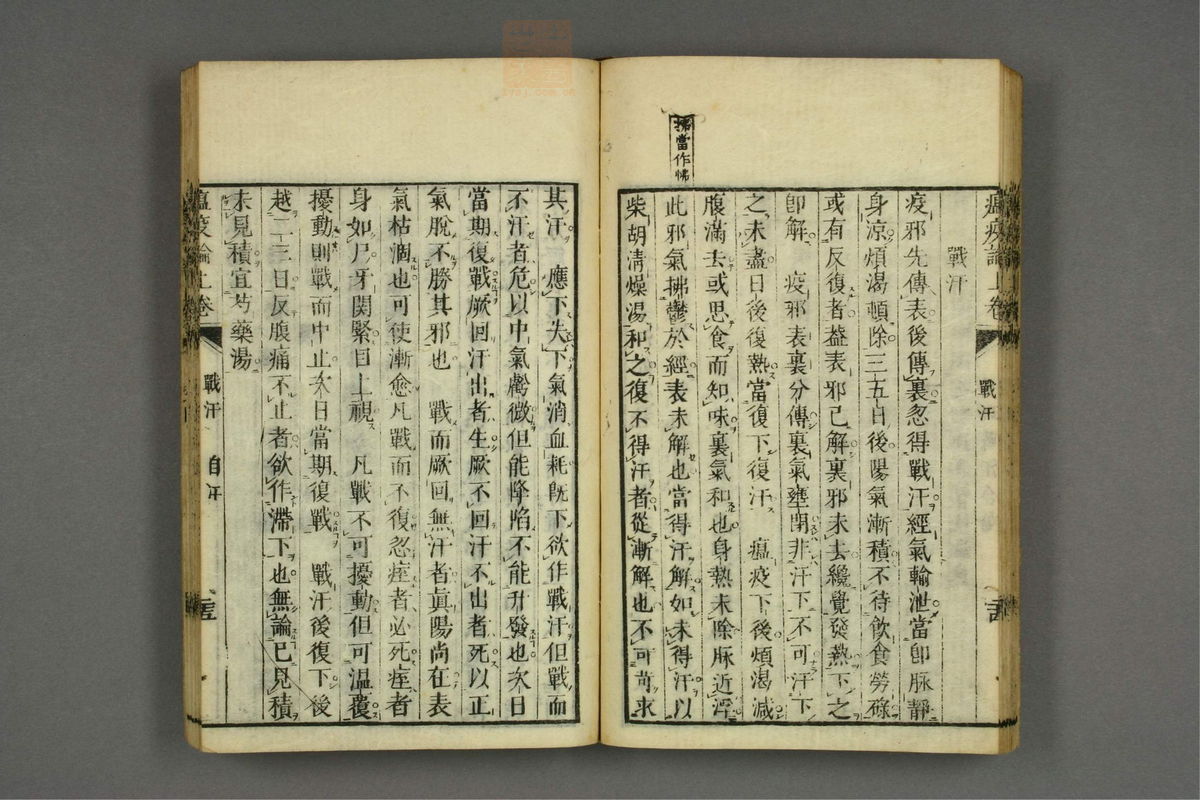 瘟疫論上卷
戰汗
戰汗
疫邪先傳表後傳裏忽得戰汗經氣輸泄當卽脉靜
身凉煩渴頓除三五日後陽氣漸積不待飲食勞碌
或有反復者葢表邪已解裏邪未去纔覺發熱下之
卽解　疫邪表裏分傳裏氣壅閉非汗下不可汗下
之未盡日後復熱當復下復汗　瘟疫下後煩渴减
腹滿去或思食而知味裏氣和也身熱未除脉近浮
此邪氣拂鬱於經表未解也當得汗解如未得汗以
柴胡淸燥湯和之復不得汗者從漸解也不可苛求
拂當作怫
其汗　應下失下氣消血耗旣下欲作戰汗但戰而
不汗者危以中氣虧微但能降陷不能升發也次日
當期復戰厥回汗出者生厥不回汗不出者死以正
氣脫不勝其邪也　戰而厥回無汗者眞陽尚在表
氣枯涸也可使漸愈凡戰而不復忽痙者必死痙者
身如尸牙関緊目上視　凡戰不可擾動但可温覆
擾動則戰而中止次日當期復戰　戰汗後復下後
越二三日反腹痛不止者欲作滯下也無論已見積
未見積宜芍藥湯
瘟疫論上卷
戰汗
自汗